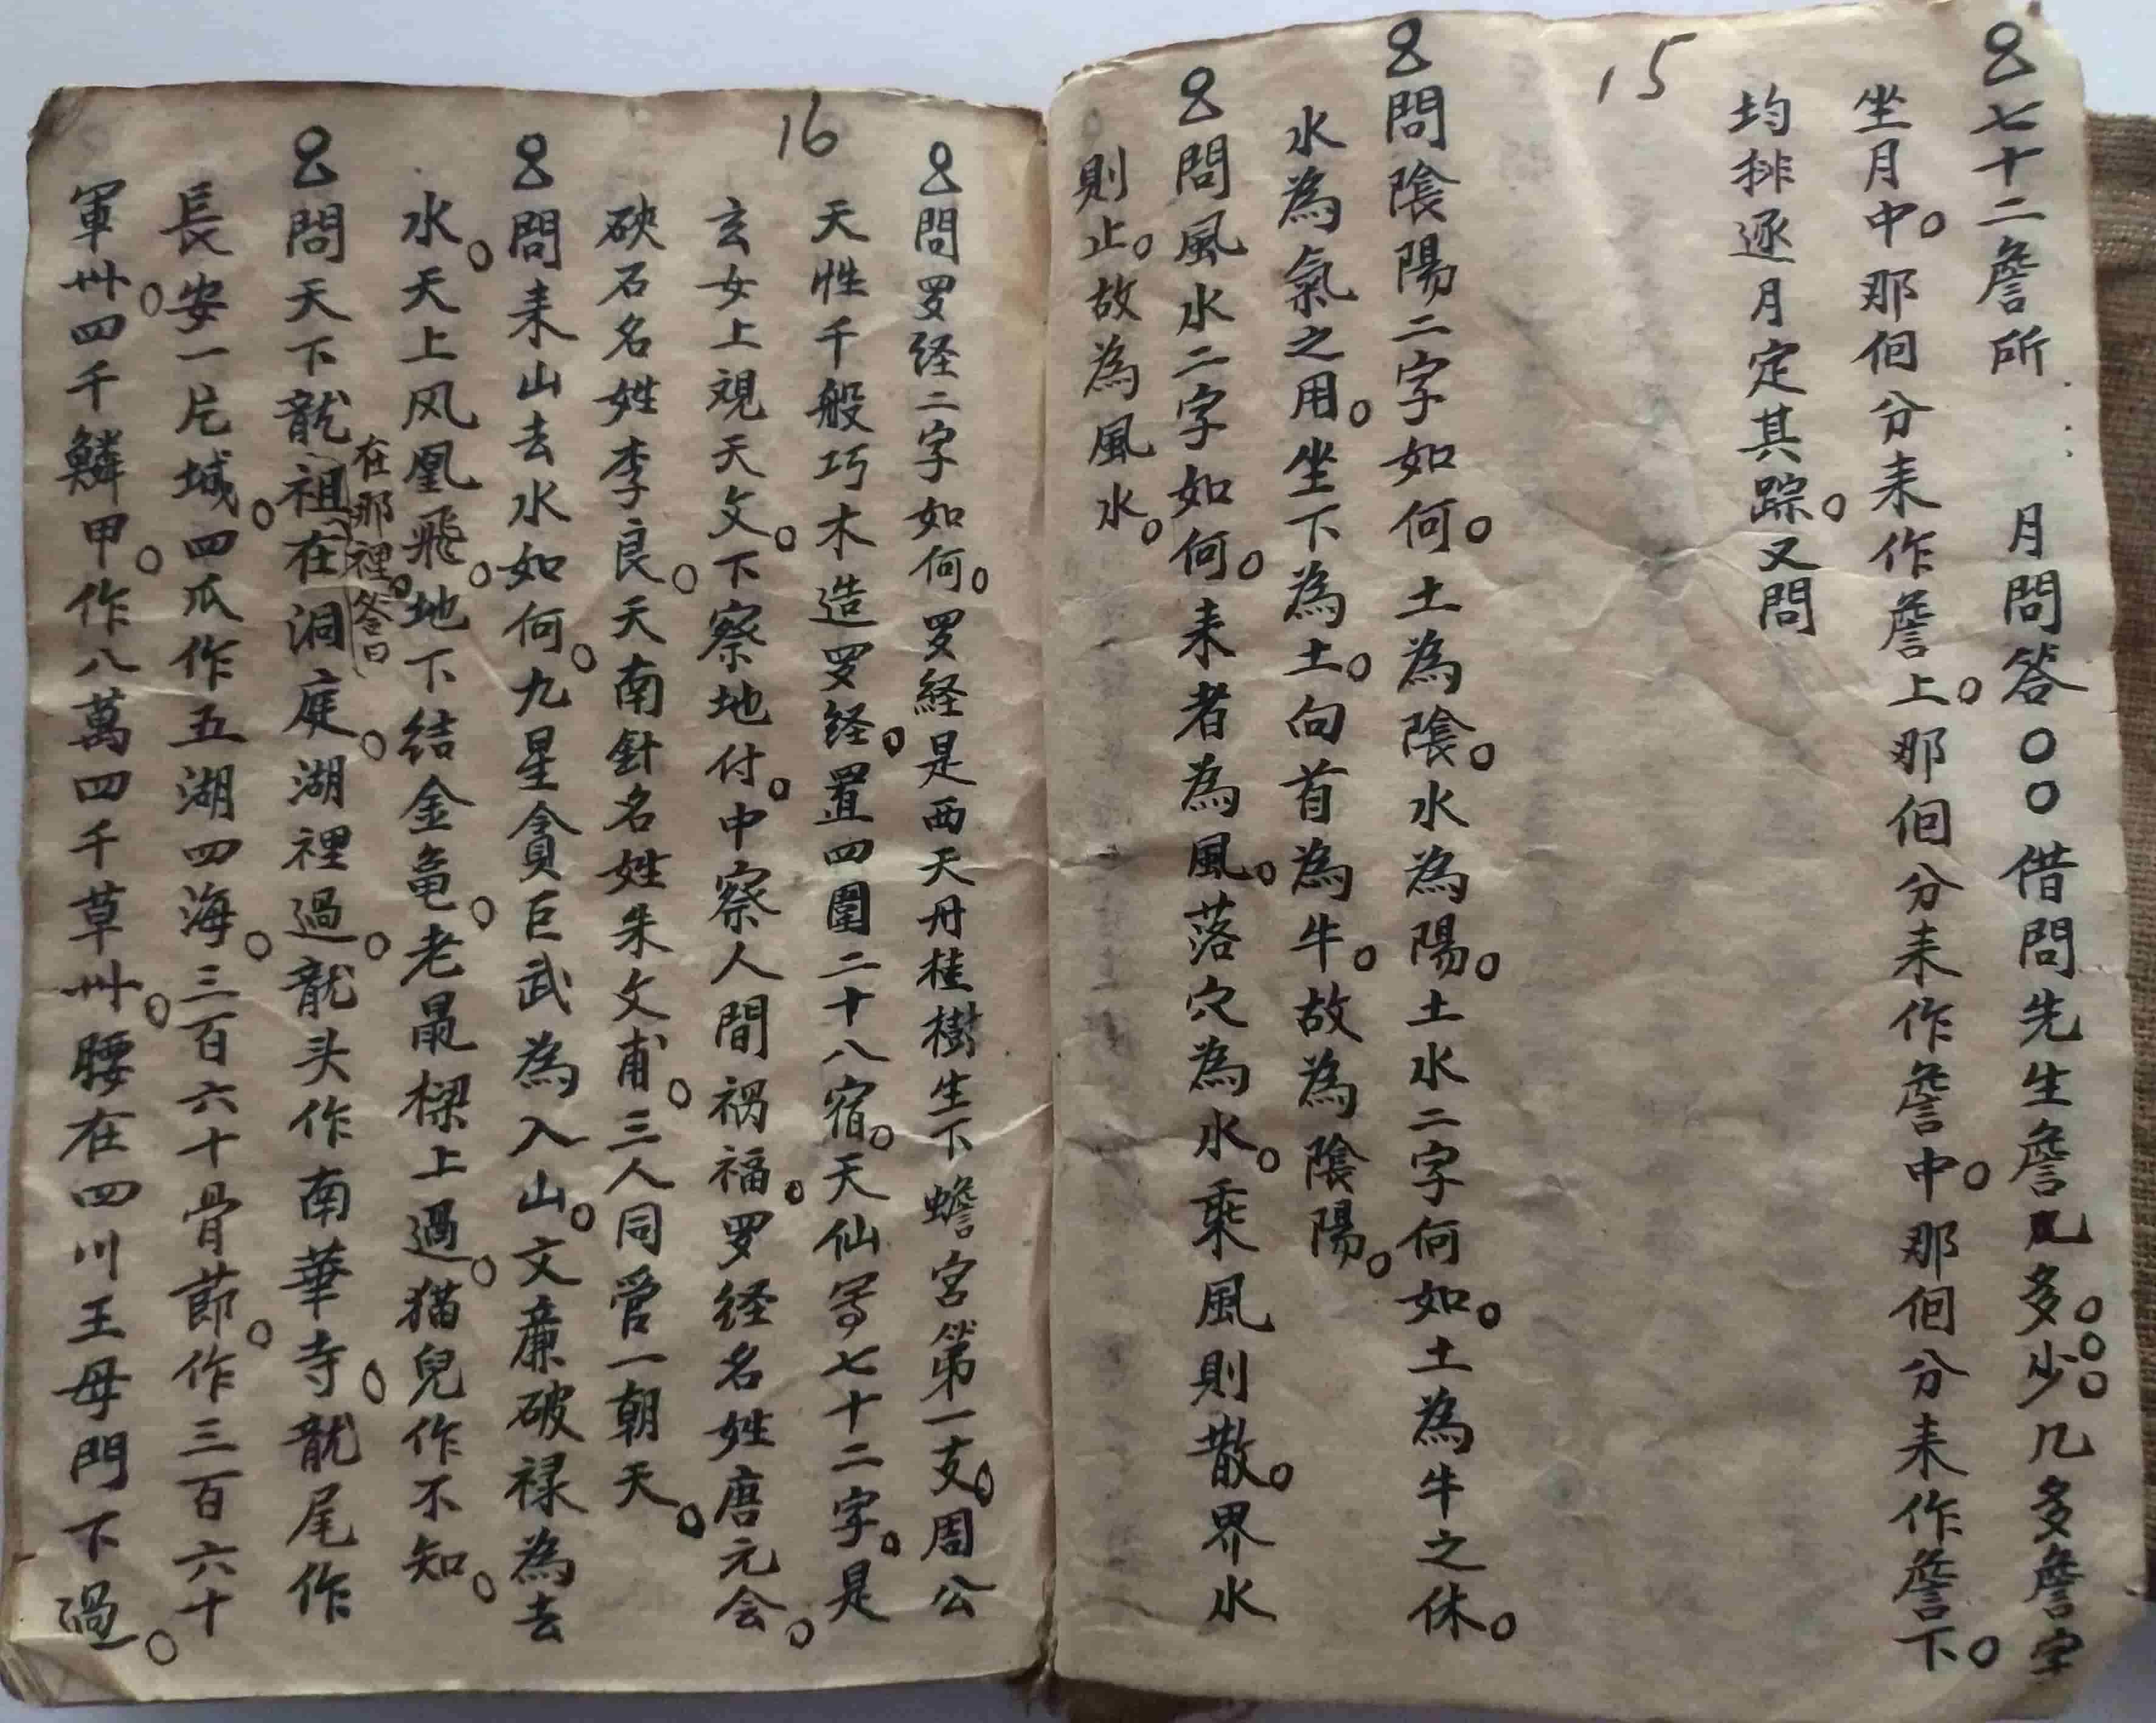 七十二詹所 月問答〇〇借問先生詹几多。少。几多詹字
坐月中。那佪分耒作詹上。那佪分耒作詹中。那佪分耒作詹下。
均排逐月定其踪。又問
15
問陰陽二字如何。土為陰。水為陽。土水二字何如。土為牛之休。
水為氣之用。坐下為土。向首為牛。故為陰陽。
問風水二字如何。耒者為風。落穴為水。乘風則散。界水
則止。故為風水。
問罗経二字如何。罗経是西天丹桂樹生下蟾宮第一支。周公
天性千般巧木造罗経。置四圍二十八宿。天仙寫七十二字。是
16
玄女上視天文。下察地付。中察人間禍福。罗経名姓唐元会。
硤石名姓李良。天南針名姓朱文甫。三人同管一朝天。
問耒山去水如何。九星貪巨武為入山。文廉破禄為去
水。天上风凰飛。地下结金亀。老鼠樑上過。猫兒作不知。
在那裡。答曰
問天下龍祖在洞庭。湖裡過。龍头作南華寺。龍尾作
長安一片城。四瓜作五湖四海。三百六十骨莭。作三百六十
軍州。四千鱗甲。作八萬四千草州。腰在四川王母門下過。